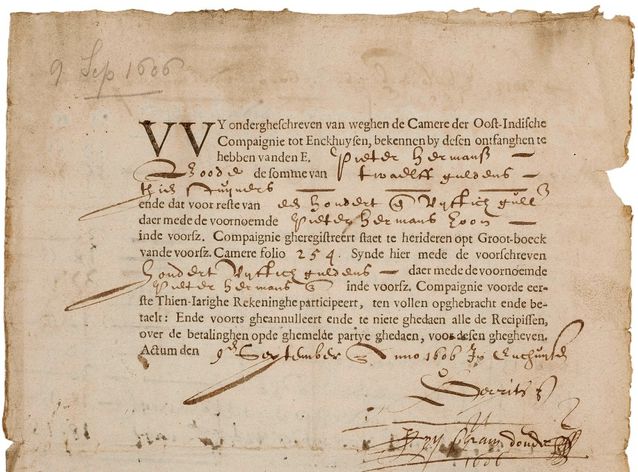 9 Sep 1606
VVY ondergheschreven van weghen de Camere der Oost-Indische
Compaignie tot Enckhuysen, bekennen by desen ontfanghen te
hebben vanden E. Pieter Hermansz
de somme van twaelff guldens
ende dat voor reste van hondert vyftich
daer mede de voornoemde Pieter Hermans zoon
inde voorsz. Compaignie gheregistreert staet te herideren opt Groot-boeck
vande voorsz. Camere folio 254. Synde hier mede de voorschreven
hondert vyftich guldens daer mede de voornoemde
Pieter Hermans inde voorsz. Compaignie voorde eer-
ste Thien-Iarighe Rekeninghe participeert, ten vollen opghebracht ende be-
taelt: Ende voorts gheannulleert ende te niete ghedaen alle de Recipissen,
over de betalinghen opde ghemelde partye ghedaen, voor desen ghegheven.
Actum den 9en September Anno 1606
1606